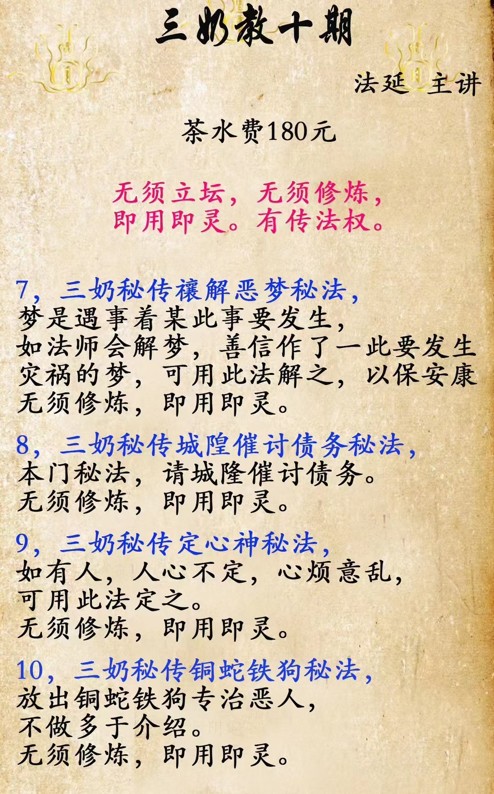 三奶教十期
法延 主讲
茶水费180元
无须立坛，无须修炼，
即用即灵。有传法权。
7，三奶秘传禳解恶梦秘法，
梦是遇事着某此事要发生，
如法师会解梦，善信作了一此要发生
灾祸的梦，可用此法解之，以保安康
无须修炼，即用即灵。
8，三奶秘传城隍催讨债务秘法，
本门秘法，请城隆催讨债务。
无须修炼，即用即灵。
9，三奶秘传定心神秘法，
如有人，人心不定，心烦意乱，
可用此法定之。
无须修炼，即用即灵。
10，三奶秘传铜蛇铁狗秘法，
放出铜蛇铁狗专治恶人，
不做多于介绍。
无须修炼，即用即灵。